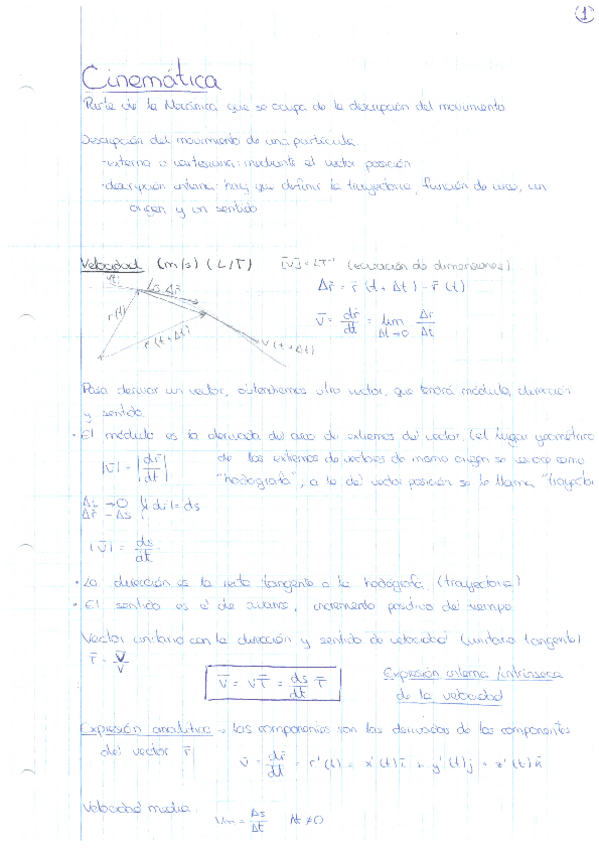 1
Cinemática
Parte de la Mecánica que se ocupa de la descripción del movimiento
Descripción del movimiento de una partícula
-externa o cartesiana: mediante el vector posición
-descripción interna: hay que definir la trayectoria, función de arco, un
origen y un sentido
Velocidad (m/s) (L/T) [v̄] = LT⁻¹ (ecuación de dimensiones)
Δr̄ = r̄(t + Δt) - r̄(t)
v(t) Δs Δr̄
r(t) r(t+Δt) v(t+Δt)
v̄ = dr̄/dt = lim Δt→0 Δr̄/Δt
Para derivar un vector, obtendremos otro vector, que tendrá módulo, dirección
y sentido
· El módulo es la derivada del arco de extremos del vector. (el lugar geométrico
de los extremos de vectores de mismo origen se conoce como
"hodografía", a la del vector posición se le llama "trayector
|v̄| = |dr̄/dt|
Δt → 0
Δr̄ → Δs |dr̄| = ds
|v̄| = ds/dt
· La dirección es la recta tangente a la hodografía. (trayectoria)
· El sentido es el de avance, incremento positivo del tiempo
Vector unitario con la dirección y sentido de velocidad (unitario tangente)
τ̄ = v̄/v
v̄ = v τ̄ = ds/dt τ̄
Expresión interna/intrínseca
de la velocidad
Expresión analítica → las componentes son las derivadas de las componentes
del vector r̄
v̄ = dr̄/dt = r'(t) = x'(t)i + y'(t)j + z'(t)k
Velocidad media:
Vm = Δs/Δt Δt ≠ 0